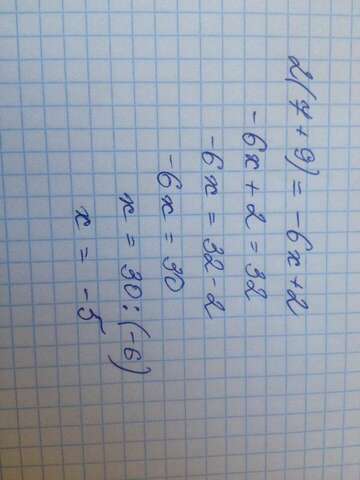 2(7+9) = -6x+2
-6x + 2 = 32
-6x = 32-2
-6x = 30
x = 30:(-6)
x = -5